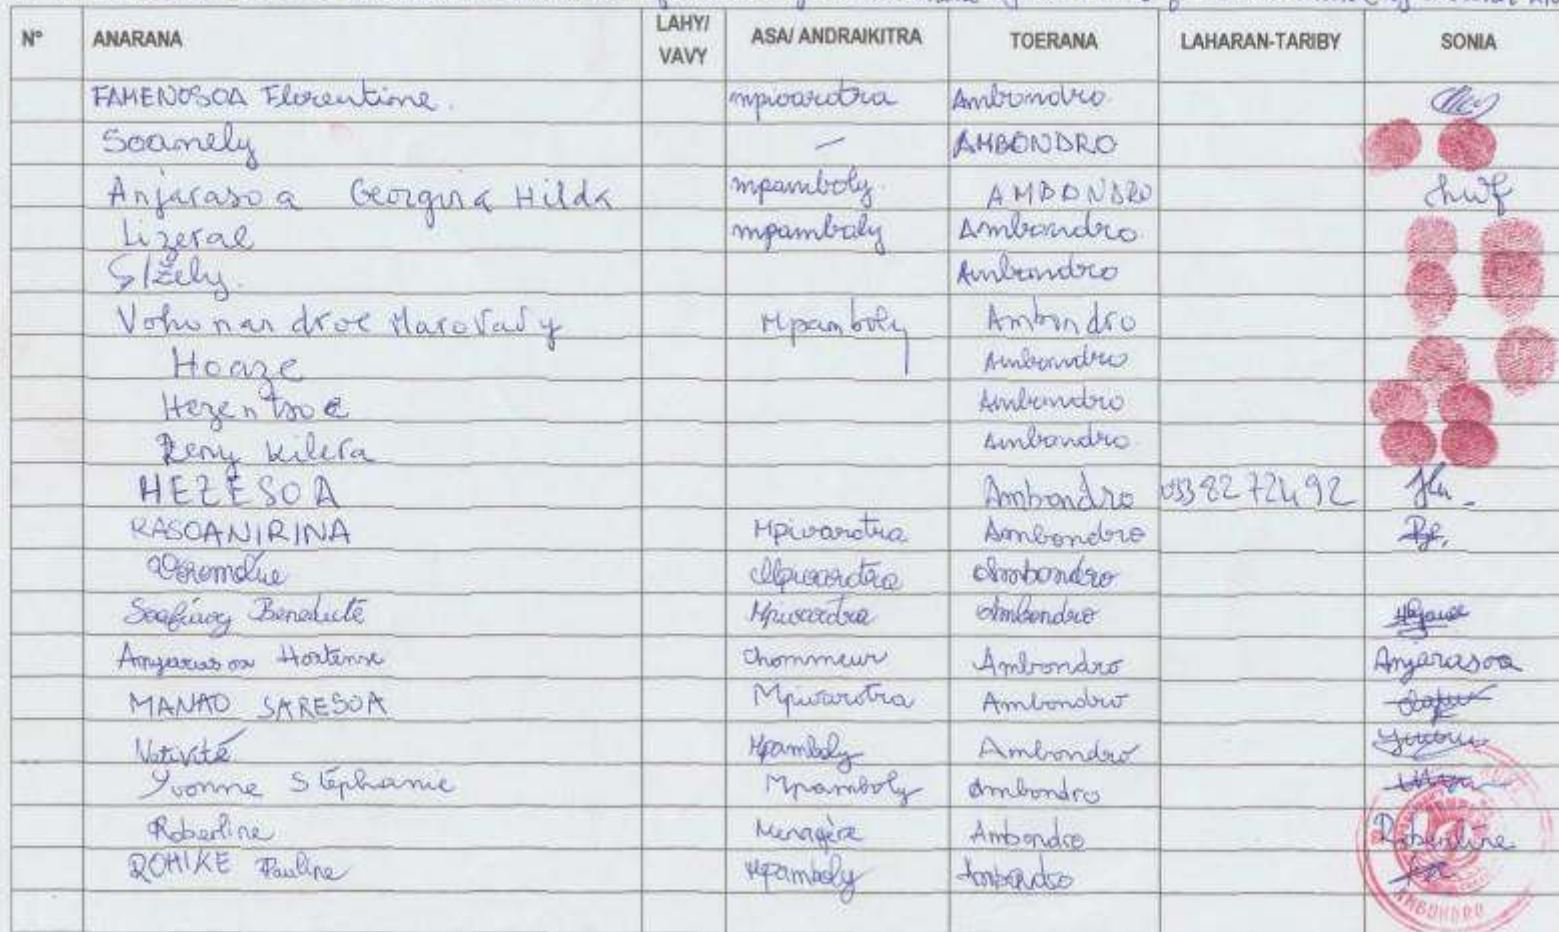 N° ANARANA LAHY/ VAVY ASA/ ANDRAIKITRA TOERANA LAHARAN-TARIBY SONIA
FAMENOSOA Florentine. mpivarotra Ambondro
Soamely — AMBONDRO
Anjarasoa Georgina Hilda mpamboly. AMBONDRO
Lizeral mpamboly Ambondro
Ambondro
Mpamboly Ambondro
Hoaze Ambondro
Ambondro
Reny Ambondro
HEZESOA Ambondro 033 82 724 92
RASOANIRINA Mpivarotra Ambondro
Mpivarotra Ambondro
Soafiavy Benedicte Mpivarotra Ambondro
Anjarasoa Hortense Chommeur Ambondro Anjarasoa
MANAO SARESOA Mpivarotra Ambondro
Nativité Mpamboly Ambondro
Yvonne Stéphanie Mpamboly Ambondro
Roberline Menagère Ambondro Roberline
ROMIKE Pauline Mpamboly Ambondro
AMBONDRO